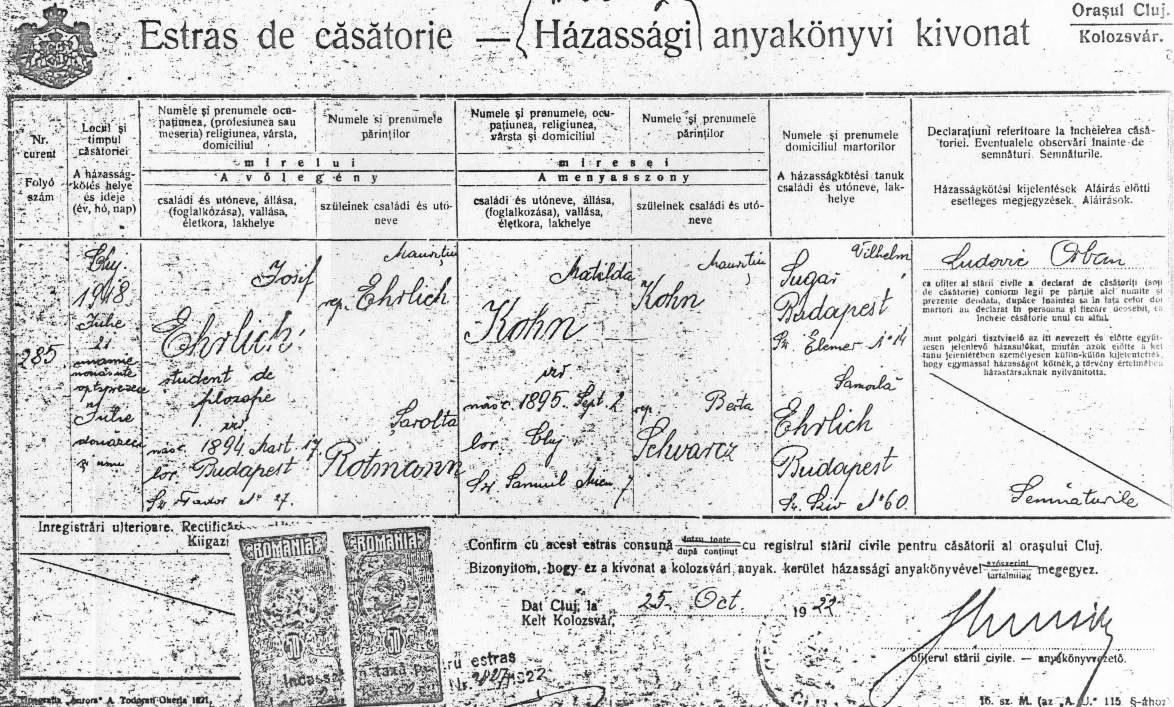 Orașul Cluj.
Kolozsvár.
Estras de căsătorie — (Házassági) anyakönyvi kivonat
Nr.
curent
Folyó
szám
Locul și
timpul
căsătoriei
A házasság-
kötés helye
és ideje
(év, hó, nap)
Numele și prenumele ocu-
pațiunea, (profesiunea sau
meseria) religiunea, vârsta,
domiciliul
Numele si prenumele
părinților
mirelui
A vőlegény
családi és utóneve, állása,
(foglalkozása), vallása,
életkora, lakhelye
szüleinek családi és utó-
neve
Numele și prenumele, ocu-
pațiunea, religiunea,
vârsta și domiciliul
Numele și prenumele
părinților
miresei
A menyasszony
családi és utóneve, állása,
(foglalkozása), vallása,
életkora, lakhelye
szüleinek családi és utó-
neve
Numele și prenumele
domiciliul martorilor
A házasságkötési tanuk
családi és utóneve, lak-
helye
Declarațiuni referitoare la încheierea căsă-
toriei. Eventualele observări înainte de
semnături. Semnăturile.
Házasságkötési kijelentések Aláirás előtti
esetleges megjegyzések. Aláirások.
285
Cluj.
1918
Iulie
21
optsprezece
Iulie
douăzeci
și unu
Iosif
Ehrlich
student de
filozofie
născ. 1894. Mart. 17
loc. Budapest
Nº 27.
Mauritiu
rep. Ehrlich
Șarolta
Rotmann
Matilda
Kohn
născ. 1895. Sept. 2
loc. Cluj
Samuil Micu 7
Mauritiu
Kohn
rep. Berta
Schvarcz
Vilhelm
Sugár
Budapest
Elemer Nº 14
Samoilă
Ehrlich
Budapest
Nº 60.
Ludovic Orban
ca ofițer al stării civile a declarat de căsătoriți (soți
de căsătorie) conform legii pe părțile aici numite și
prezente deodata, dupăce înaintea sa în fața celor doi
martori au declarat în persoana și fiecare deosebit, ca
încheie căsătorie unul cu altul.
mint polgári tisztviselő az itt nevezett és előtte együt-
tesen jelenlevő házasulókat, miután azok előtte a két
tanu jelenlétében személyesen külön-külön kijelentették,
hogy egymással házasságot kötnek, a törvény értelmében
házastársaknak nyilvánitotta.
Semnăturile
Inregistrări ulterioare. Rectificări
Kiigazi
ROMANIA
ROMANIA
50
50
taxa
Confirm cu acest estras consună întru toate / după conținut cu registrul stării civile pentru căsătorii al orașului Cluj.
Bizonyitom, hogy ez a kivonat a kolozsvári anyak. kerület házassági anyakönyvével szószerint / tartalmilag megegyez.
Dat Cluj, la
Kelt Kolozsvár,
25. Oct. 1922
estras
Nr.
ofițerul stării civile. — anyakönyvvezető.
16. sz. M. (az „A. U.” 115. §-ához